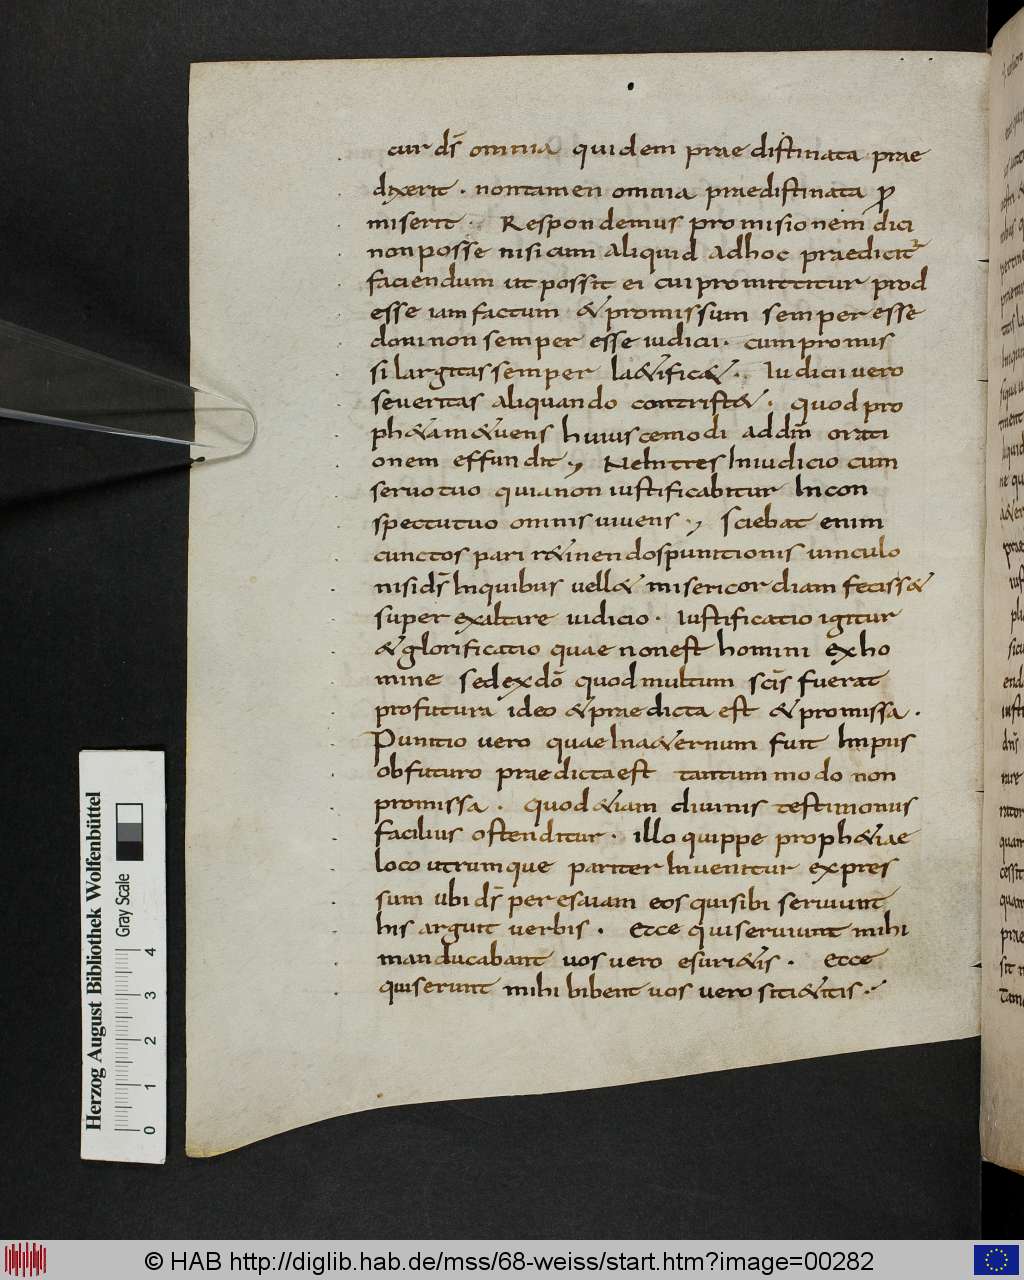 cur dr̄ omnia quidem praedistinata prae
dixerit . nontamen omnia praedistinata ꝓ
miserit . Respondemus promisionem dici
nonposse nisi cum aliquid adhoc praedicitᷣ
faciendum ut possit ei cui promittitur prod
esse iam factum &promissum semper esse
doni non semper esse iudicii . cum promis
si largitas semper la&ific& . Iudicii vero
severitas aliquando contrist& . quod pro
ph&am &uens huiuscemodi addn̄m orati
onem effundit ; Ne Intres In iudicio cum
servo tuo quia non iustificabitur In con
spectu tuo omnis uiuens ; sciebat enim
cunctos pari r&inendos punitionis uinculo
nisi ds̄ In quibus uell& misericordiam feciss&
super exaltare iudicio . Iustificatio igitur
& glorificatio quae non est homini ex ho
mine sed ex dō quod multum scīs fuerat
profutura ideo & praedicta est & promissa .
Punitio uero quae In a&ernum fuit Impiis
obfuturo praedicta est tantum modo non
promissa . quod &iam diuinis testimoniis
facilius ostenditur . illo quippe proph&iae
loco utrumque pariter Inuenitur expres
sum ubi ds̄ per esaiam eos qui sibi seruiunt
his arguit uerbis . Ecce qui seruiunt mihi
manducabant uos uero esuri&is . Ecce
qui seruunt mihi bibent uos uero siti&itis .
Herzog August Bibliothek Wolfenbüttel
Gray Scale
0 1 2 3 4
© HAB http://diglib.hab.de/mss/68-weiss/start.htm?image=00282